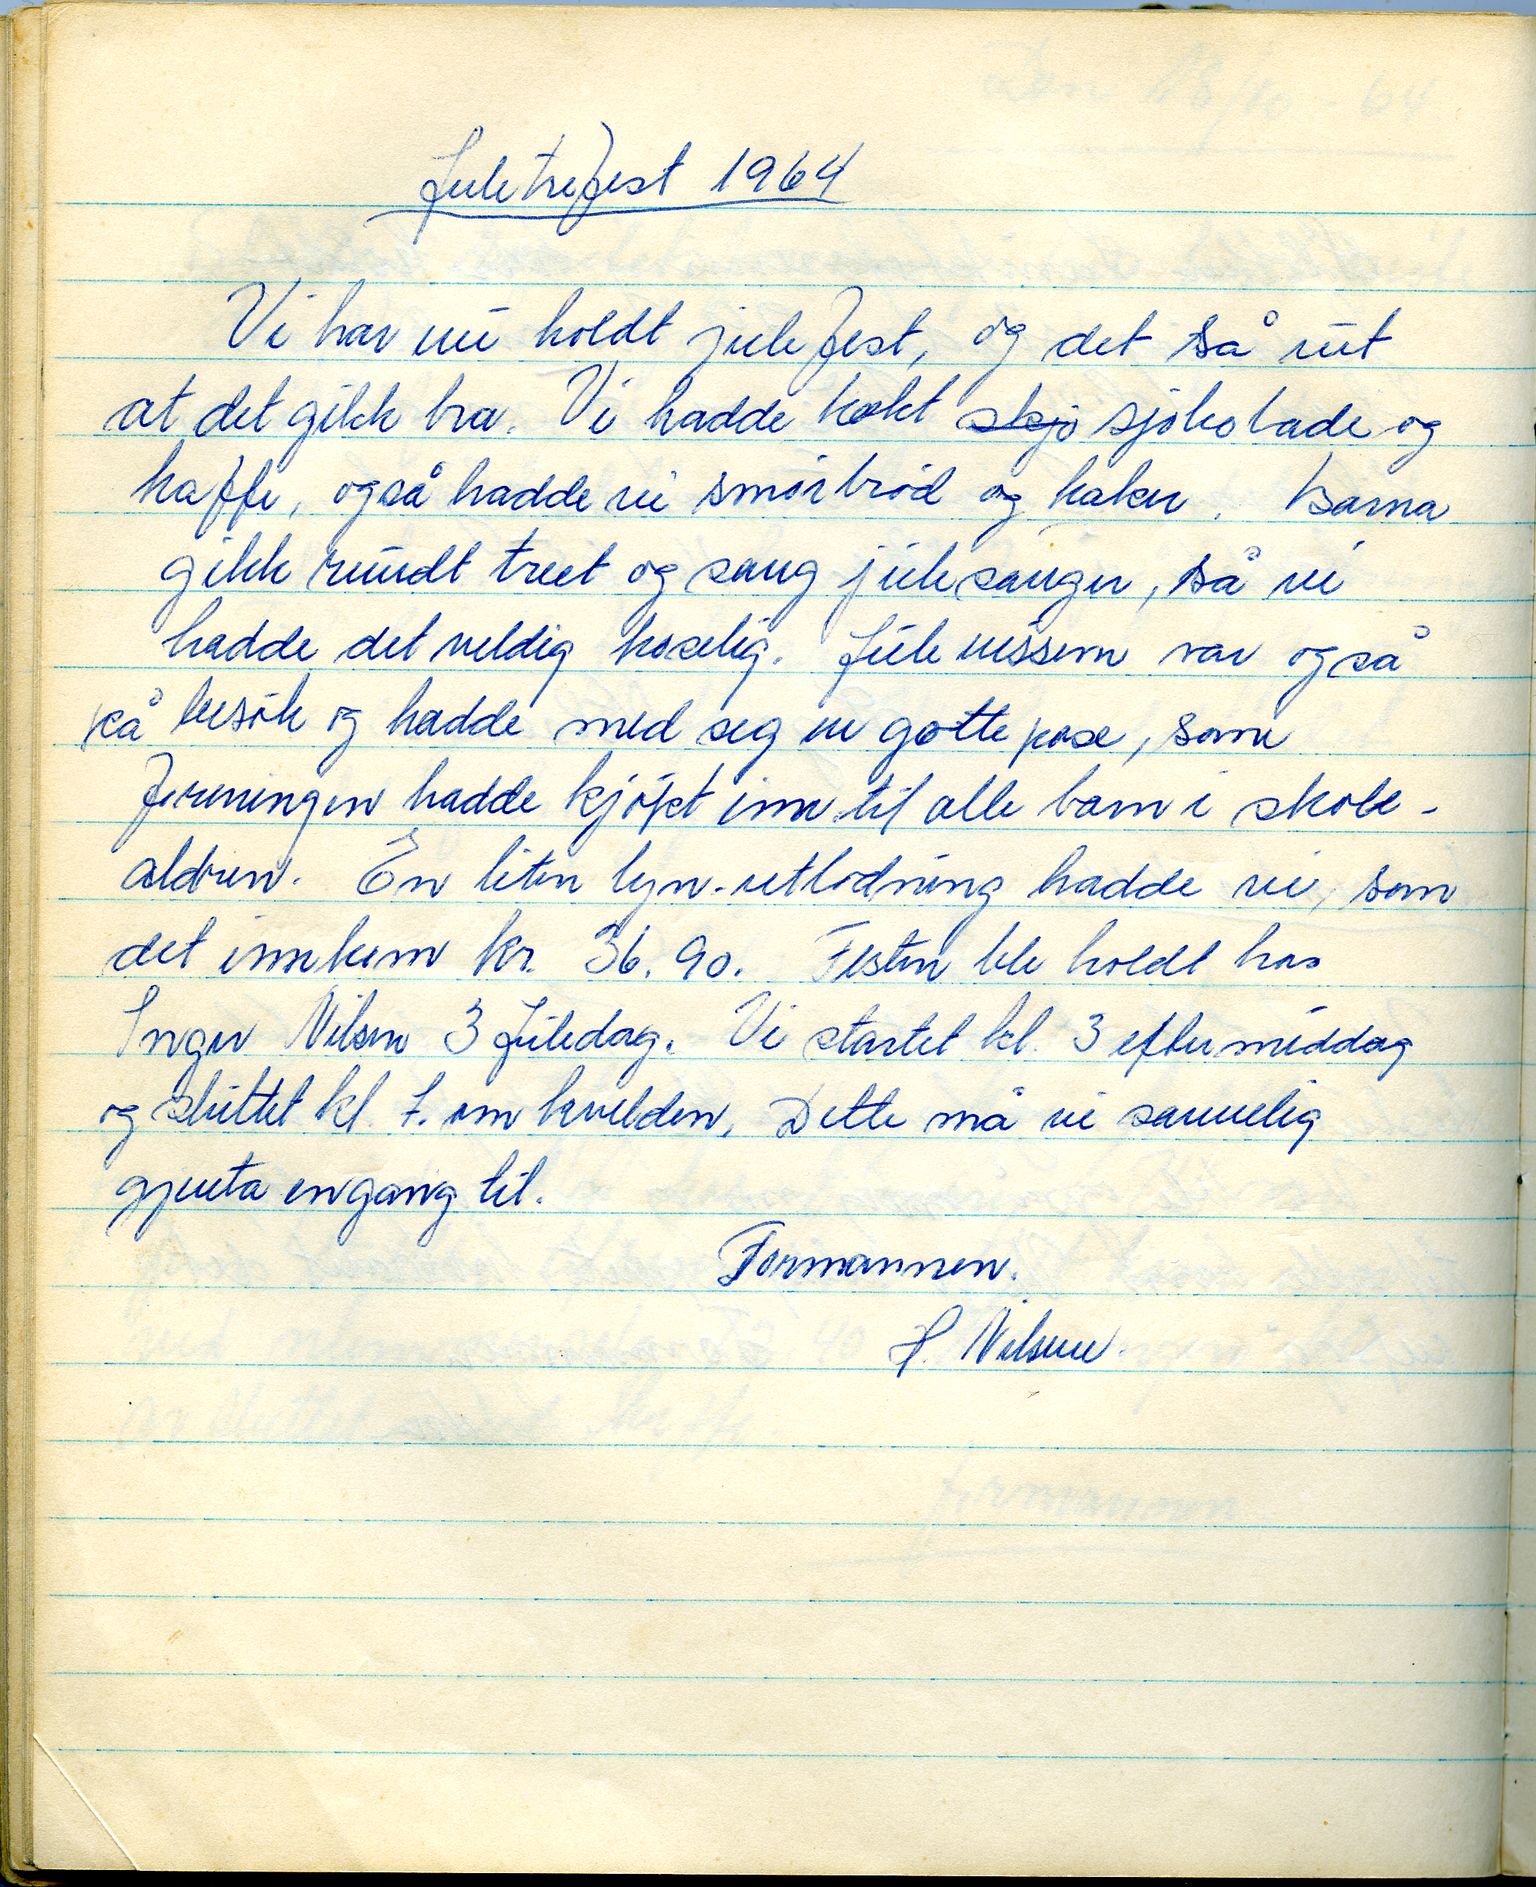 Juletrefest 1964
Vi har nu holdt julefest, og det så ut
at det gikk bra. Vi hadde kokt skjo sjokolade og
kaffe, også hadde vi smørbrød og kaker. Barna
gikk rundt treet og sang julesanger, så vi
hadde det veldig koselig. Julenissem var også
på besøk og hadde med seg en gottepose, som
foreningen hadde kjøpt inn til alle barn i skole-
aldren. En liten lyn-utlodning hadde vi, som
det innkom kr. 36.90. Festen ble holdt hos
Inger Nilsen 3 Juledag. Vi startet kl. 3 eftermiddag
og sluttet kl. 7. om kvelden, Dette må vi sannelig
gjenta engang til.
Formannen.
H. Nilsen.